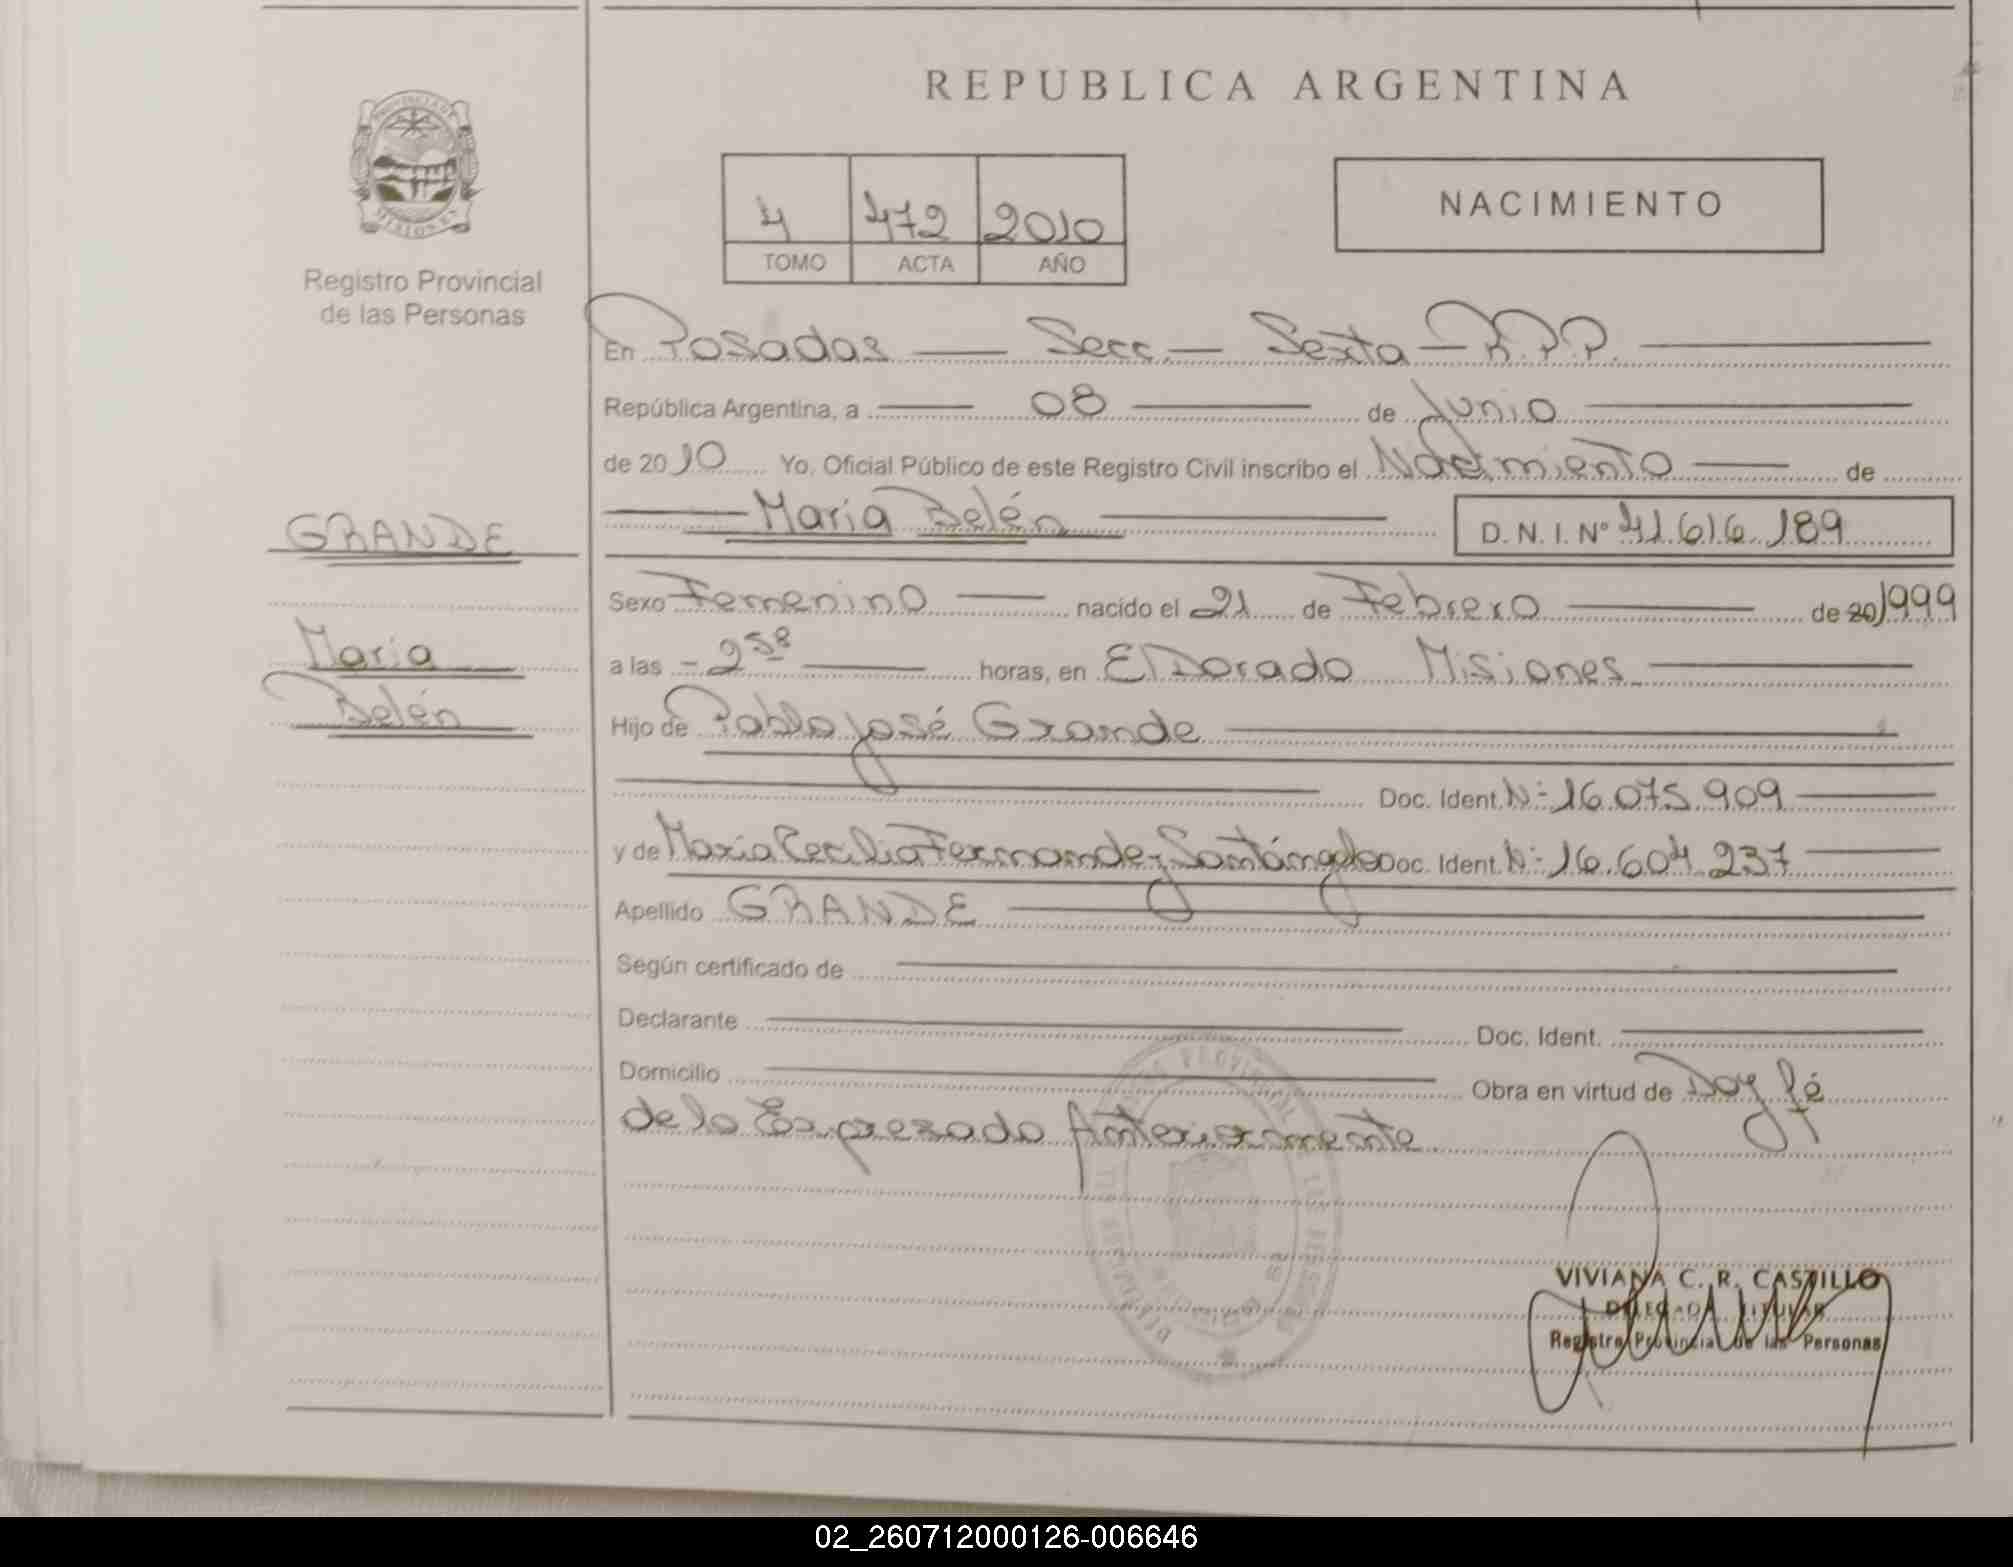 REPUBLICA ARGENTINA
PROVINCIA DE
MISIONES
Registro Provincial
de las Personas
4 472 2010
TOMO ACTA AÑO
NACIMIENTO
En Posadas — Secc. — Sexta — R.P.P.
República Argentina, a 08 de Junio
de 2010 Yo, Oficial Público de este Registro Civil inscribo el Nacimiento de
María Belén D.N.I. Nº 41.616.189
GRANDE
Sexo Femenino nacido el 21 de Febrero de 20 1999
María
a las - 2 58 horas, en ElDorado Misiones
Belén
Hijo de Pablo José Grande
Doc. Ident. Nº 16.075.909
y de María Cecilia Fernandez Santángelo Doc. Ident. Nº 16.604.237
Apellido GRANDE
Según certificado de
Declarante Doc. Ident.
Domicilio Obra en virtud de Doy fé
de lo Expresado Anteriormente
VIVIANA C. R. CASTILLO
DELEGADA TITULAR
Registro Provincial de las Personas
02_260712000126-006646